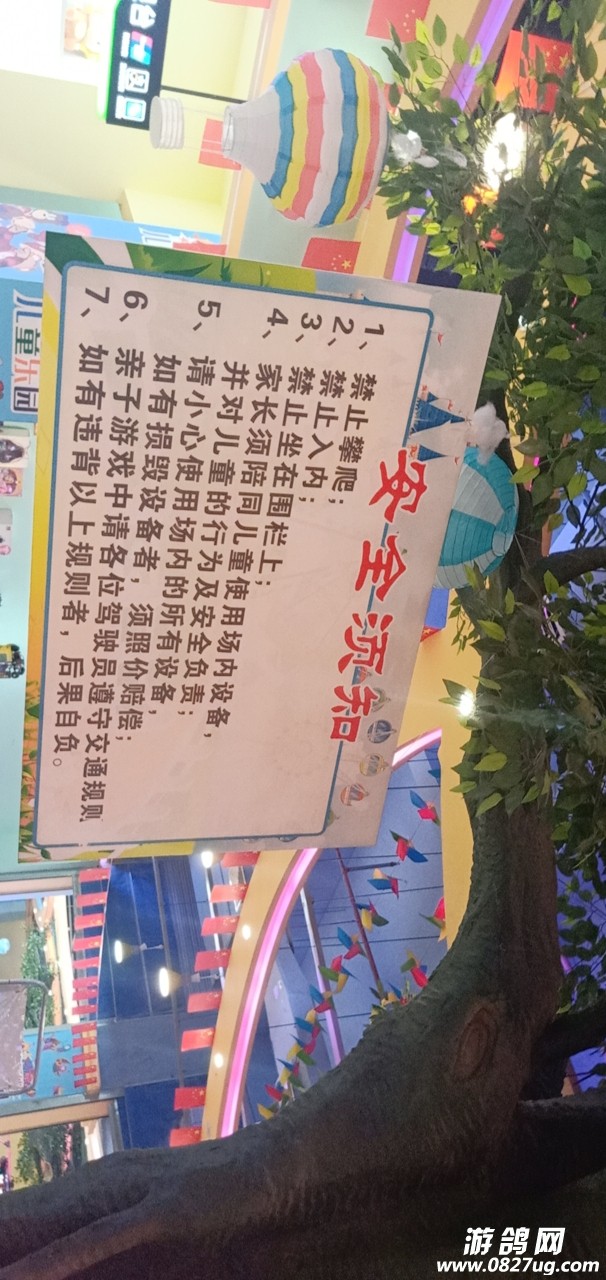 安全须知
1、禁止攀爬；
2、禁止入内；
3、禁止坐在围栏上；
4、家长须陪同儿童使用场内设备，
并对儿童的行为及安全负责；
5、请小心使用场内的所有设备，
如有损毁设备者，须照价赔偿；
6、亲子游戏中请各位驾驶员遵守交通规则
7、如有违背以上规则者，后果自负。
儿童乐园
游鸽网
www.0827ug.com